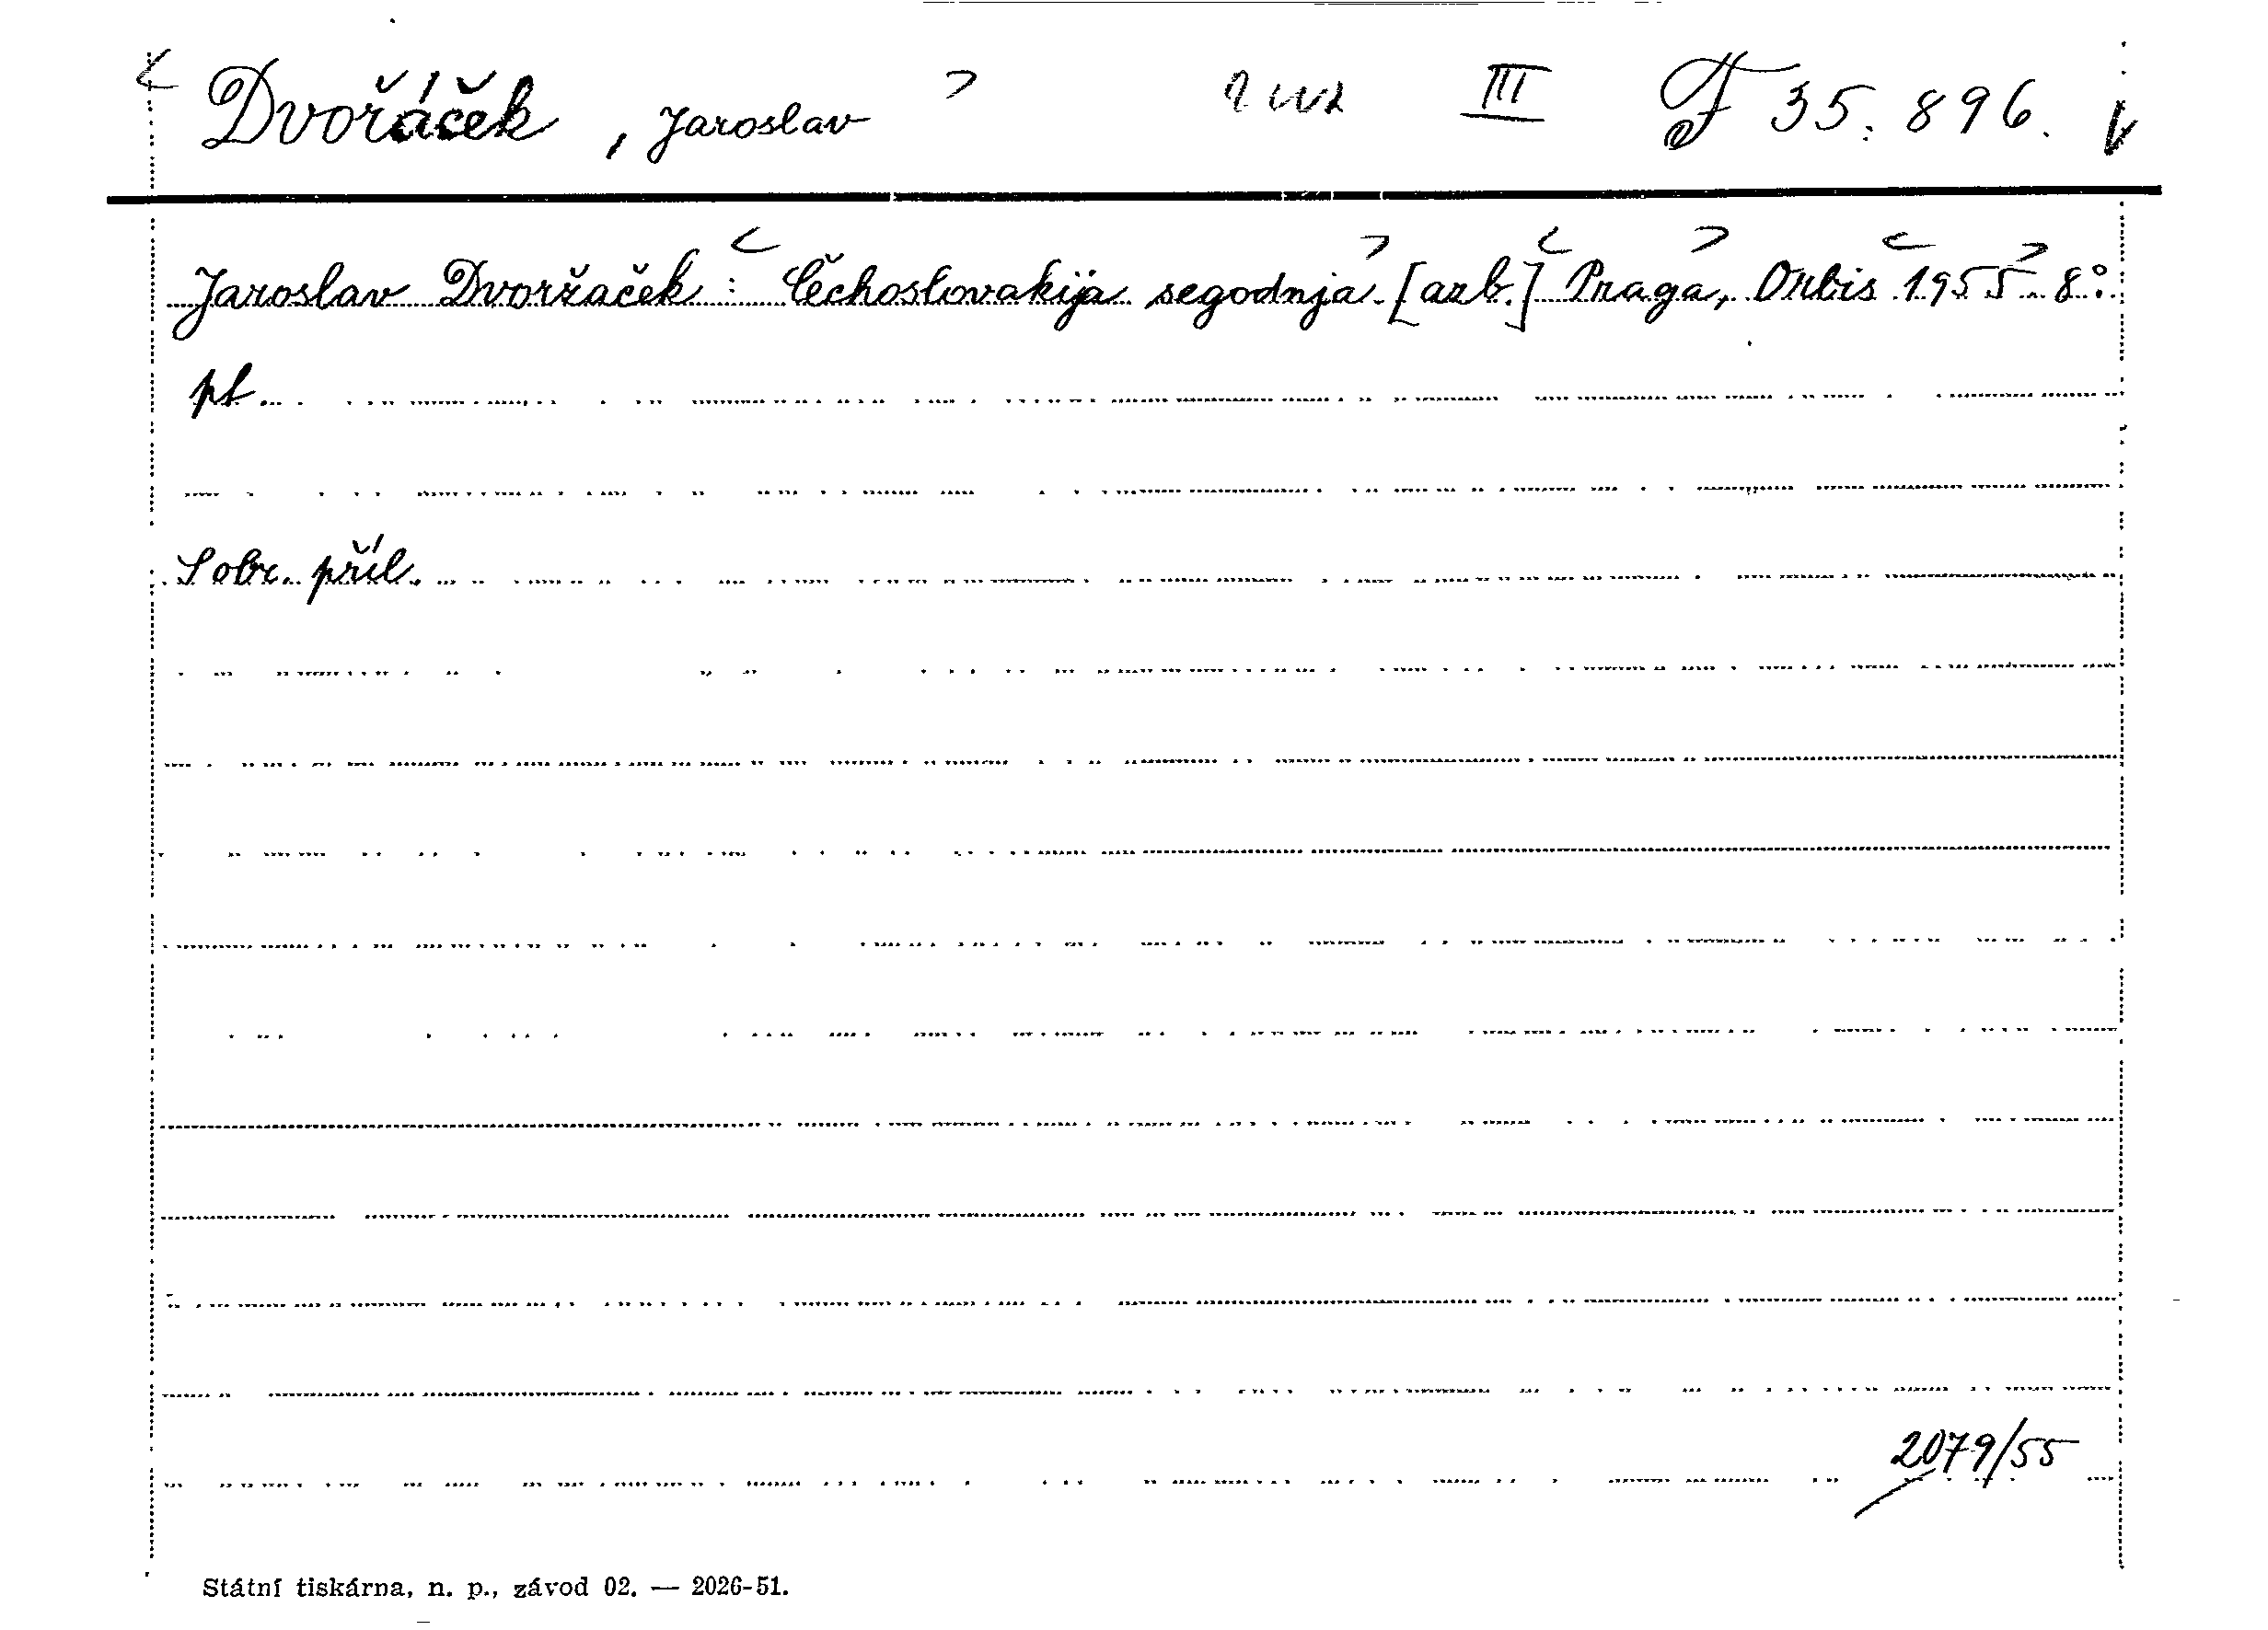 Dvořáček, Jaroslav III F 35.896.
Jaroslav Dvoržaček: Čechoslovakija segodnja. [azb.] Praga, Orbis 1955 8°.
pt.
S obr. příl.
2079/55
Státní tiskárna, n. p., závod 02. — 2026-51.